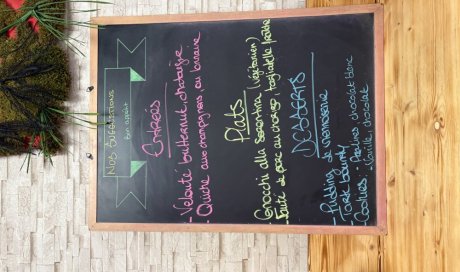 Nos Suggestions
Bon appétit
Entrées
- Velouté butternut, chataigne
- Quiche aux champignons, ou lorraine
Plats
- Gnocchi alla sorentina (végétarien)
- Sauté de porc au chorizo, tagliatelle fraîche
DESSERTS
- Pudding de viennoiserie
- Tarte bounty
- Cookies: - Pralines chocolat blanc
- Vanille, chocolat